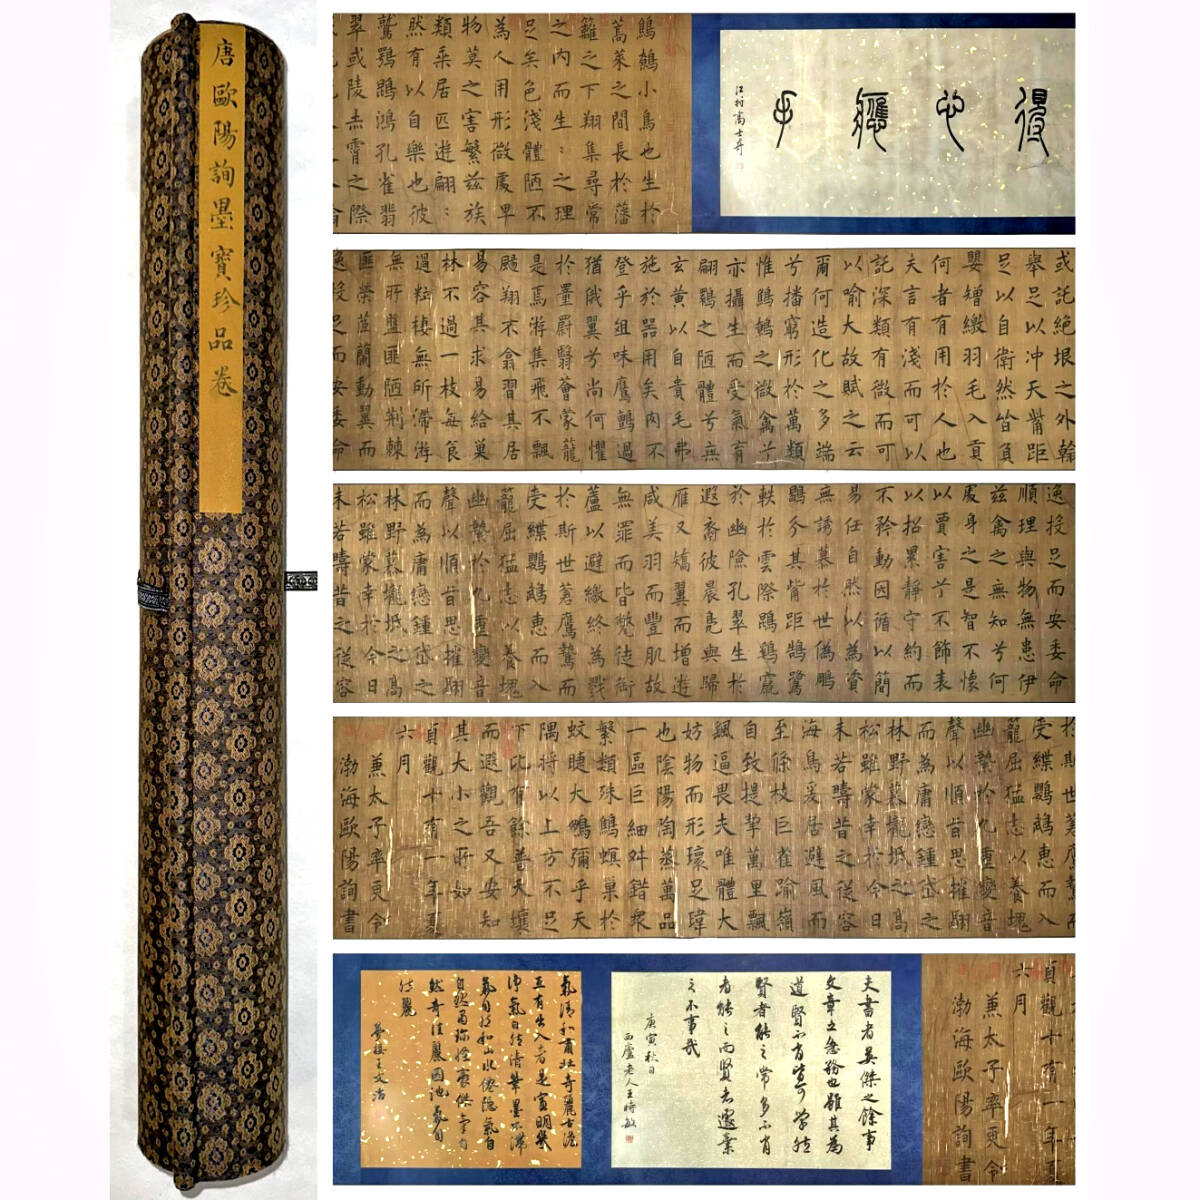 唐歐陽詢墨寶珍品卷
得心應手
江村高士奇
鷦鷯小鳥也生於
蒿萊之間長於藩
籬之下翔集尋常
之内而生:之理
足矣色淺體陋不
為人用形微處卑
物莫之害繁茲族
類乘居匹遊翩:
然有以自樂也彼
鷲鶚鵾鴻孔雀翡
翠或陵赤霄之際
或託絶垠之外翰
舉足以冲天觜距
足以自衛然皆負
嬰矰繳羽毛入貢
何者有用於人也
夫言有淺而可以
託深類有微而可
以喻大故賦之云
爾何造化之多端
兮播窮形於萬類
惟鷦鷯之微禽兮
亦攝生而受氣育
翩翾之陋體兮無
玄黄以自貴毛弗
施於器用矣肉不
登乎俎味鷹鸇過
猶俄翼兮尚何懼
於罿罻翳薈蒙籠
是焉游集飛不飄
颺翔不翕習其居
易容其求易給巢
林不過一枝每食
過粒棲無所滯游
無所盤匪陋荆棘
匪榮茝蘭動翼而
逸投足而安委命
逸投足而安委命
順理與物無患伊
兹禽之無知兮何
處身之是智不懷
以賈害兮不飾表
以招累静守約而
不矜動因循以簡
易任自然以為資
無誘慕於世偽鵰
鶡介其觜距鵠鷺
軼於雲際鵾雞竄
於幽險孔翠生於
遐裔彼晨鳧與歸
雁又矯翼而增逝
咸美羽而豐肌故
無罪而皆斃徒銜
蘆以避繳終為戮
於斯世蒼鷹鷙而
受緤鸚鵡惠而入
籠屈猛志以養塊
幽縶於九重變音
聲以順旨思摧翮
而為庸戀鍾岱之
林野慕隴坻之高
松雖蒙幸於今日
未若疇昔之從容
於斯世蒼鷹鷙而
受緤鸚鵡惠而入
籠屈猛志以養塊
幽縶於九重變音
聲以順旨思摧翮
而為庸戀鍾岱之
林野慕隴坻之高
松雖蒙幸於今日
未若疇昔之從容
海鳥爰居避風而
至條枝巨雀踰嶺
自致提挈萬里飄
飄逼畏夫唯體大
妨物而形瓌足瑋
也陰陽陶蒸萬品
一區巨細舛錯眾
繁類殊鷦螟巢於
蚊睫大鵬彌乎天
隅將以上方不足
下比有餘普天壤
而遐觀吾又安知
其大小之所如
貞觀十有一年夏
六月
兼太子率更令
渤海歐陽詢書
貞觀十有一年夏
六月
兼太子率更令
渤海歐陽詢書
夫書者英傑之餘事
文章之急務也雖其為
道賢不肖皆可學然
賢者能之常多不肖
者能之而賢者遽棄
之不事哉
庚寅秋日
西廬老人王時敏
氣清和肅壯奇麗古澹
互有出入者是窗明几
夢樓王文治